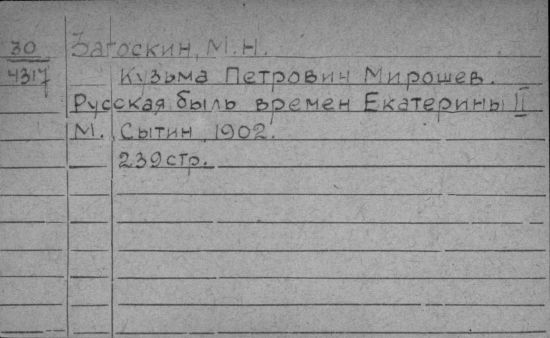 30 Загоскин, М.Н.
4317 Кузьма Петрович Мирошев.
Русская быль времен Екатерины II
М. Сытин, 1902.
239 стр.